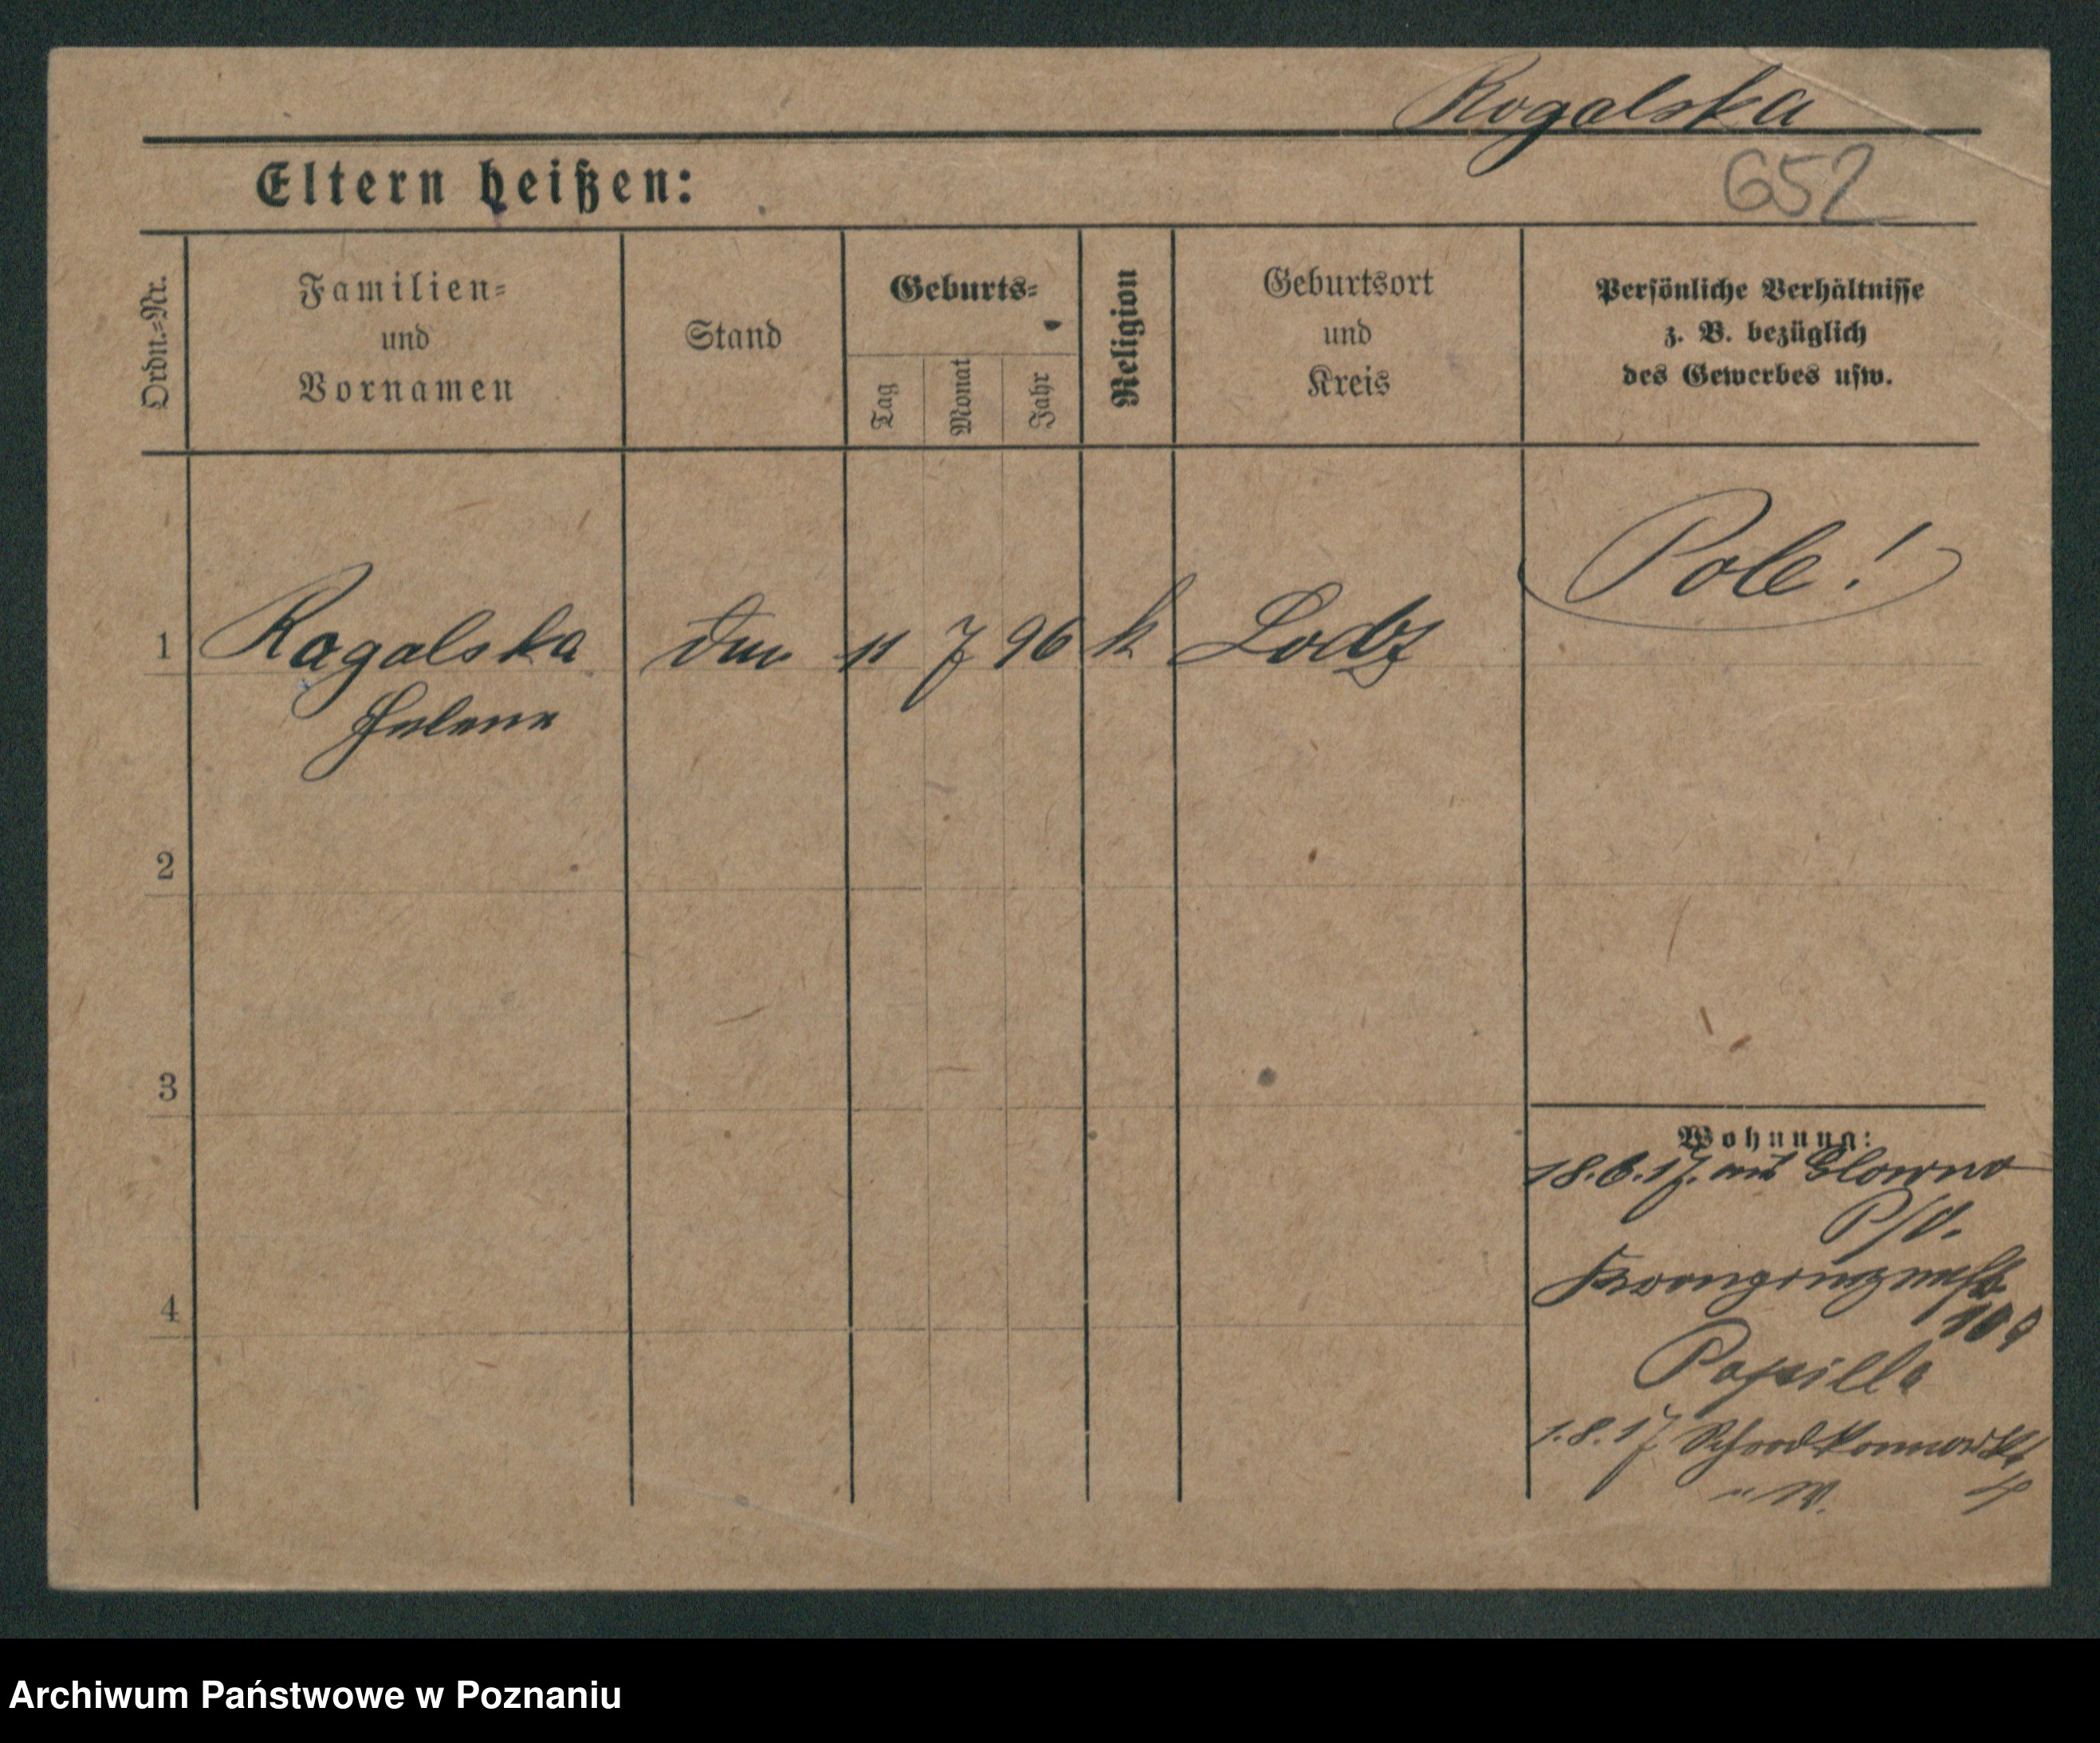 Rogalska
652
Eltern heißen:
Ordn.=Nr.
Familien=
und
Vornamen
Stand
Geburts=
Tag
Monat
Jahr
Religion
Geburtsort
und
Kreis
Persönliche Verhältnisse
z. B. bezüglich
des Gewerbes usw.
Pole!
1 Rogalska 11 7 96 k Lodz
Helene
2
3
4
Wohnung:
18.6.17. aus Glowno
1.8.17
Archiwum Państwowe w Poznaniu